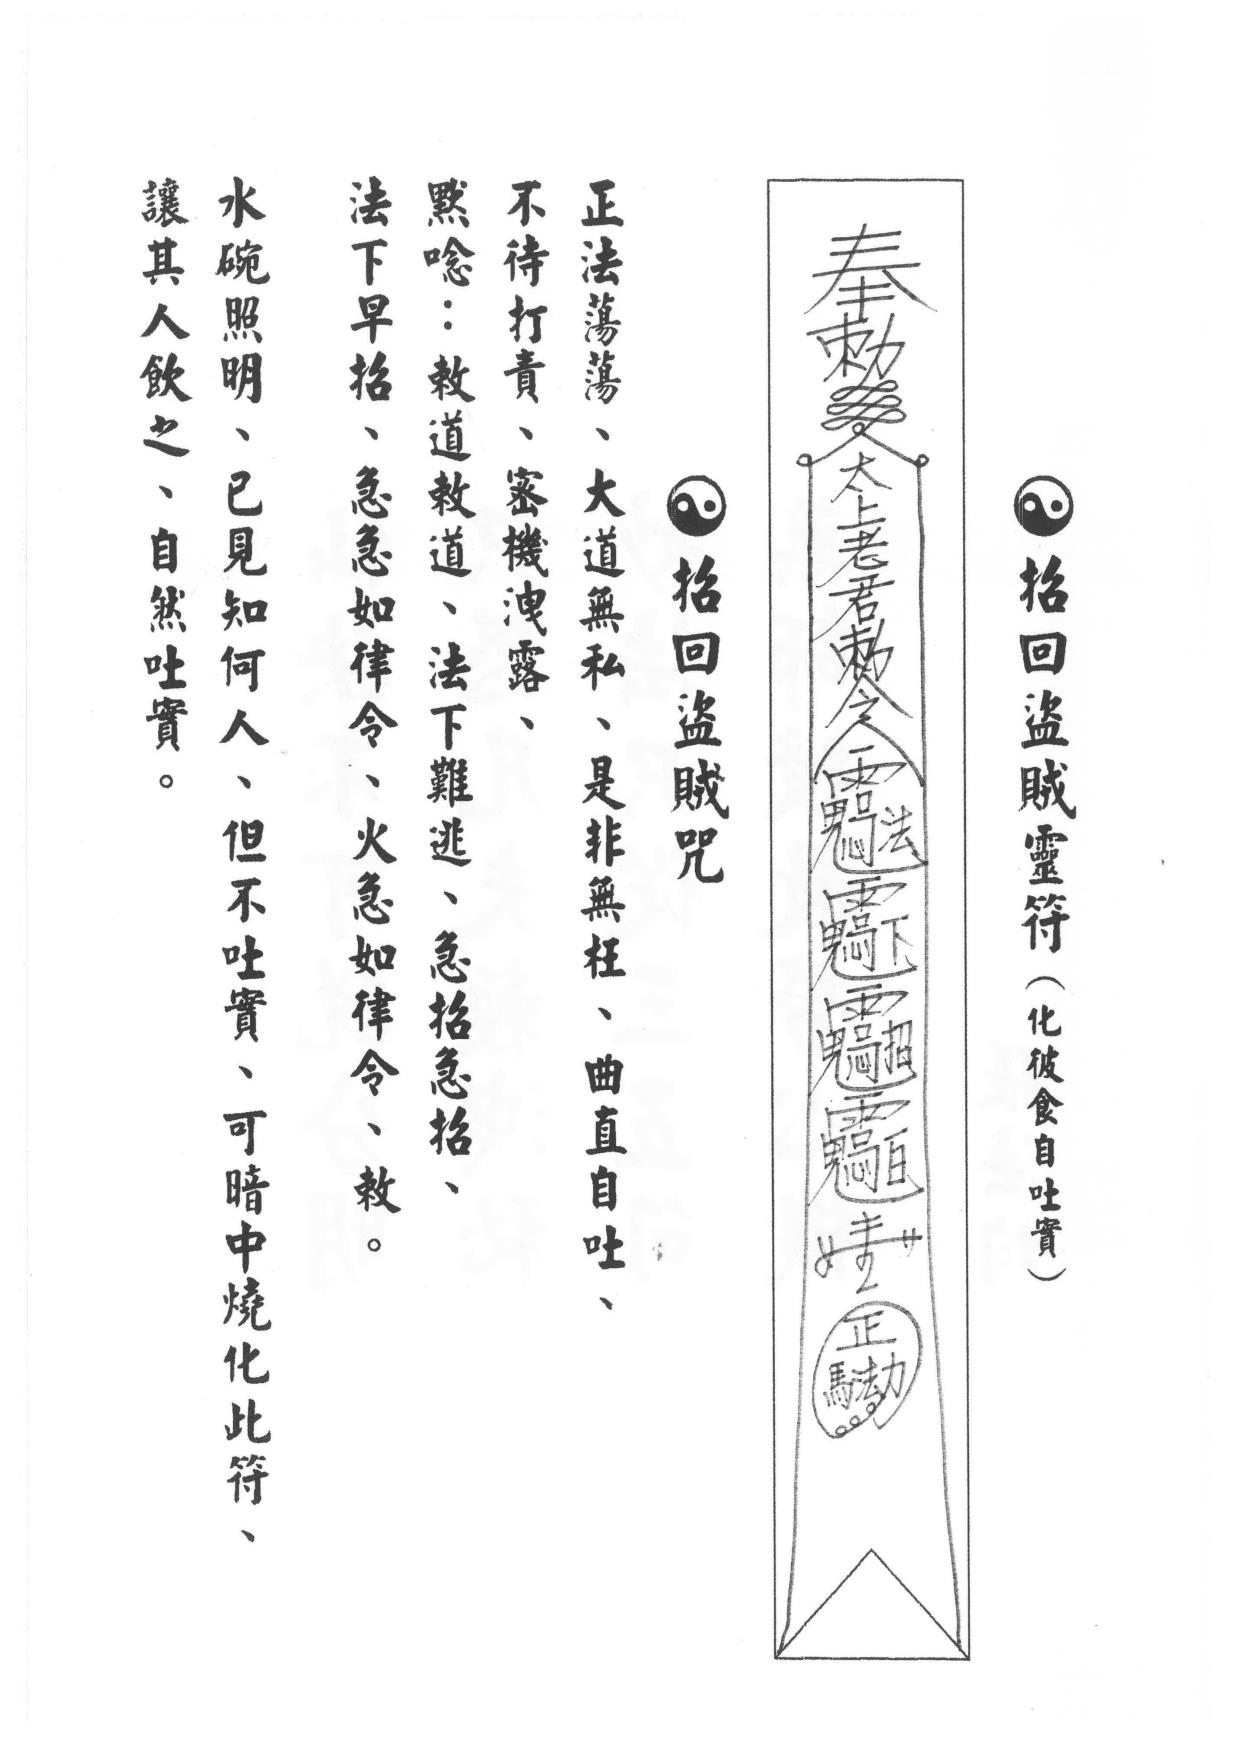 招回盜賊靈符（化彼食自吐實）
奉勅
太上老君勅令
法
下
招
自
正
招回盜賊咒
正法蕩蕩、大道無私、是非無枉、曲直自吐、
不待打責、密機洩露、
默唸：敕道敕道、法下難逃、急招急招、
法下早招、急急如律令、火急如律令、敕。
水碗照明、已見知何人、但不吐實、可暗中燒化此符、
讓其人飲之、自然吐實。